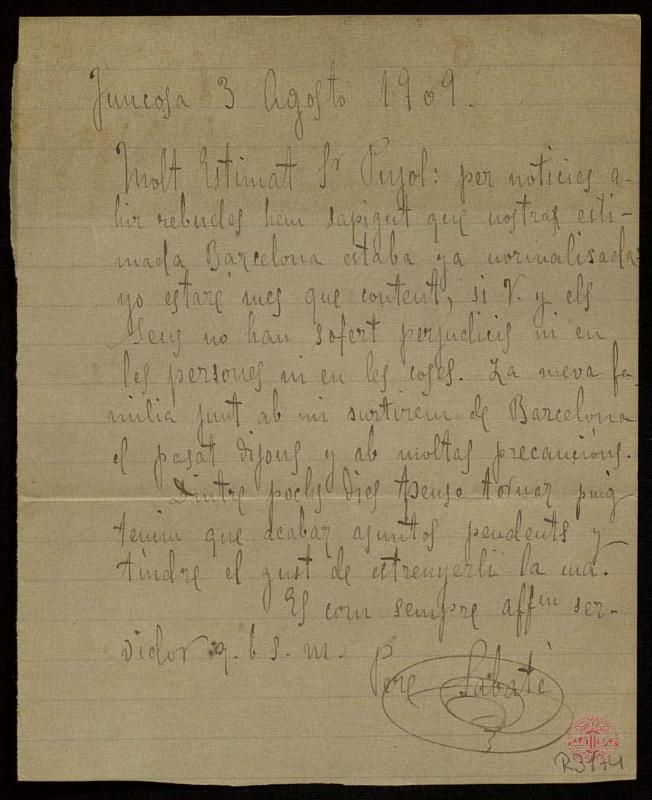 Juncosa 3 Agosto 1909.
Molt Estimat Sr Pujol: per noticies a-
hir rebudes hem sapigut que nostras esti-
mada Barcelona estaba ya normalisada
yo estaré mes que content, si V. y els
seus no han sofert perjudicis ni en
les persones ni en les coses. La meva fa-
milia junt ab mi surtirem de Barcelona
el pasat dijous y ab moltas precaucións.
Dintre pochs dies penso tornar puig
tenim que acabar asuntos pendents y
tindre el gust de estrenyerli la ma.
Es com sempre affm ser-
vidor q. b s. m.
Pere Sabaté
R3174